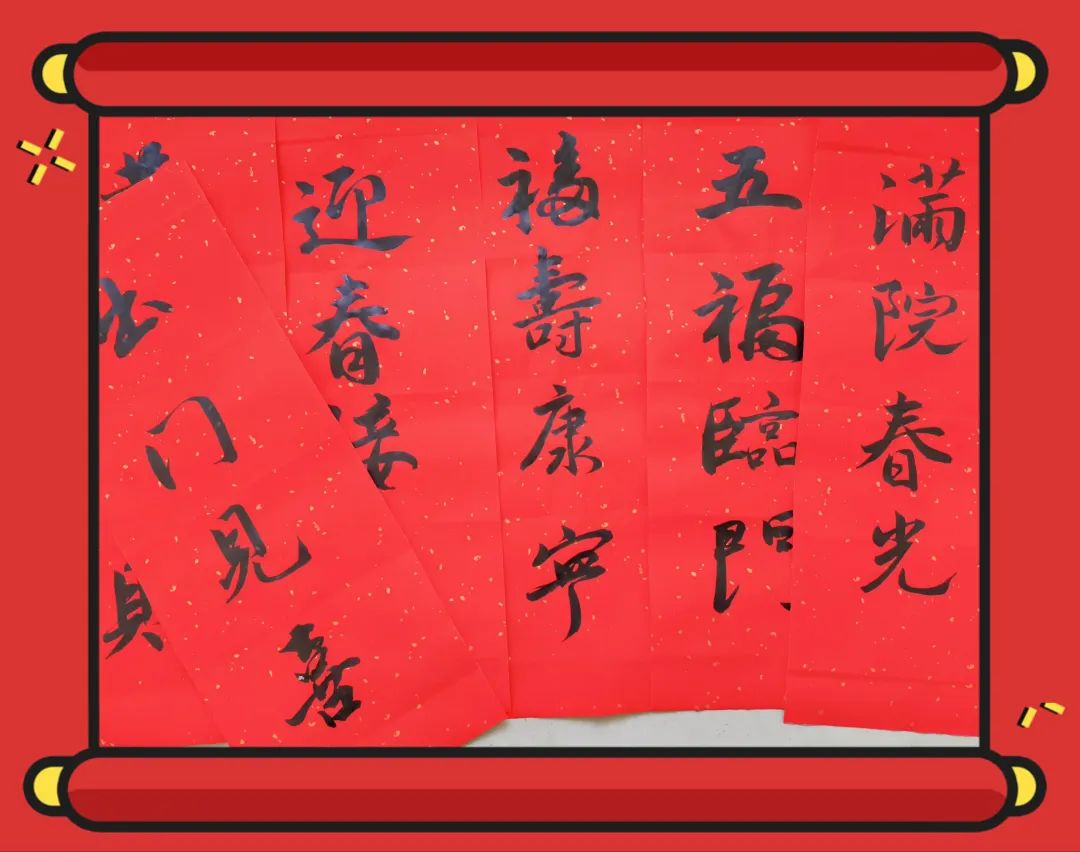 滿院春光
五福臨門
福壽康寧
迎春接
出门見喜